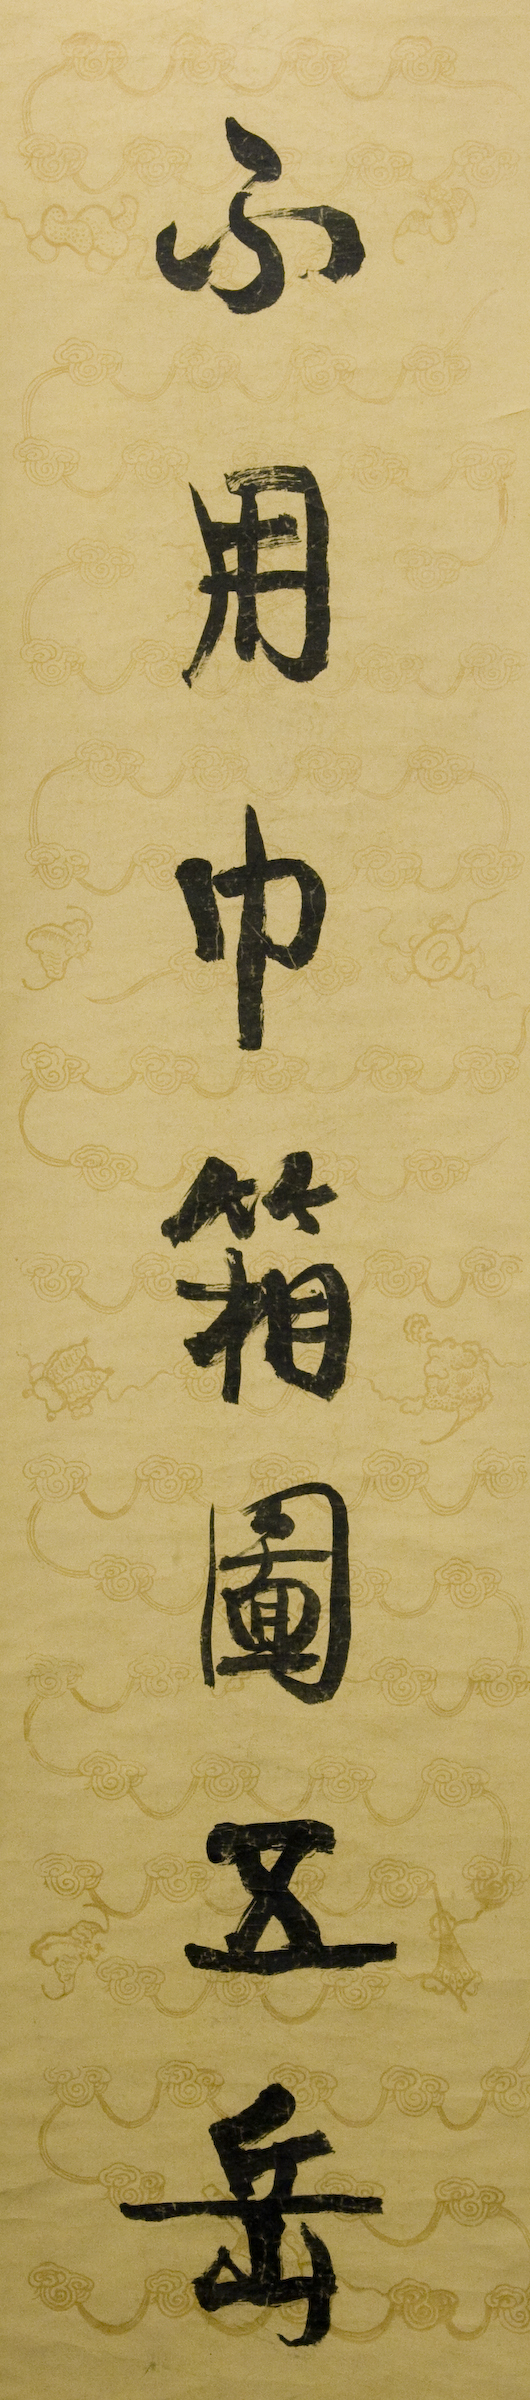 不用巾箱圖五岳